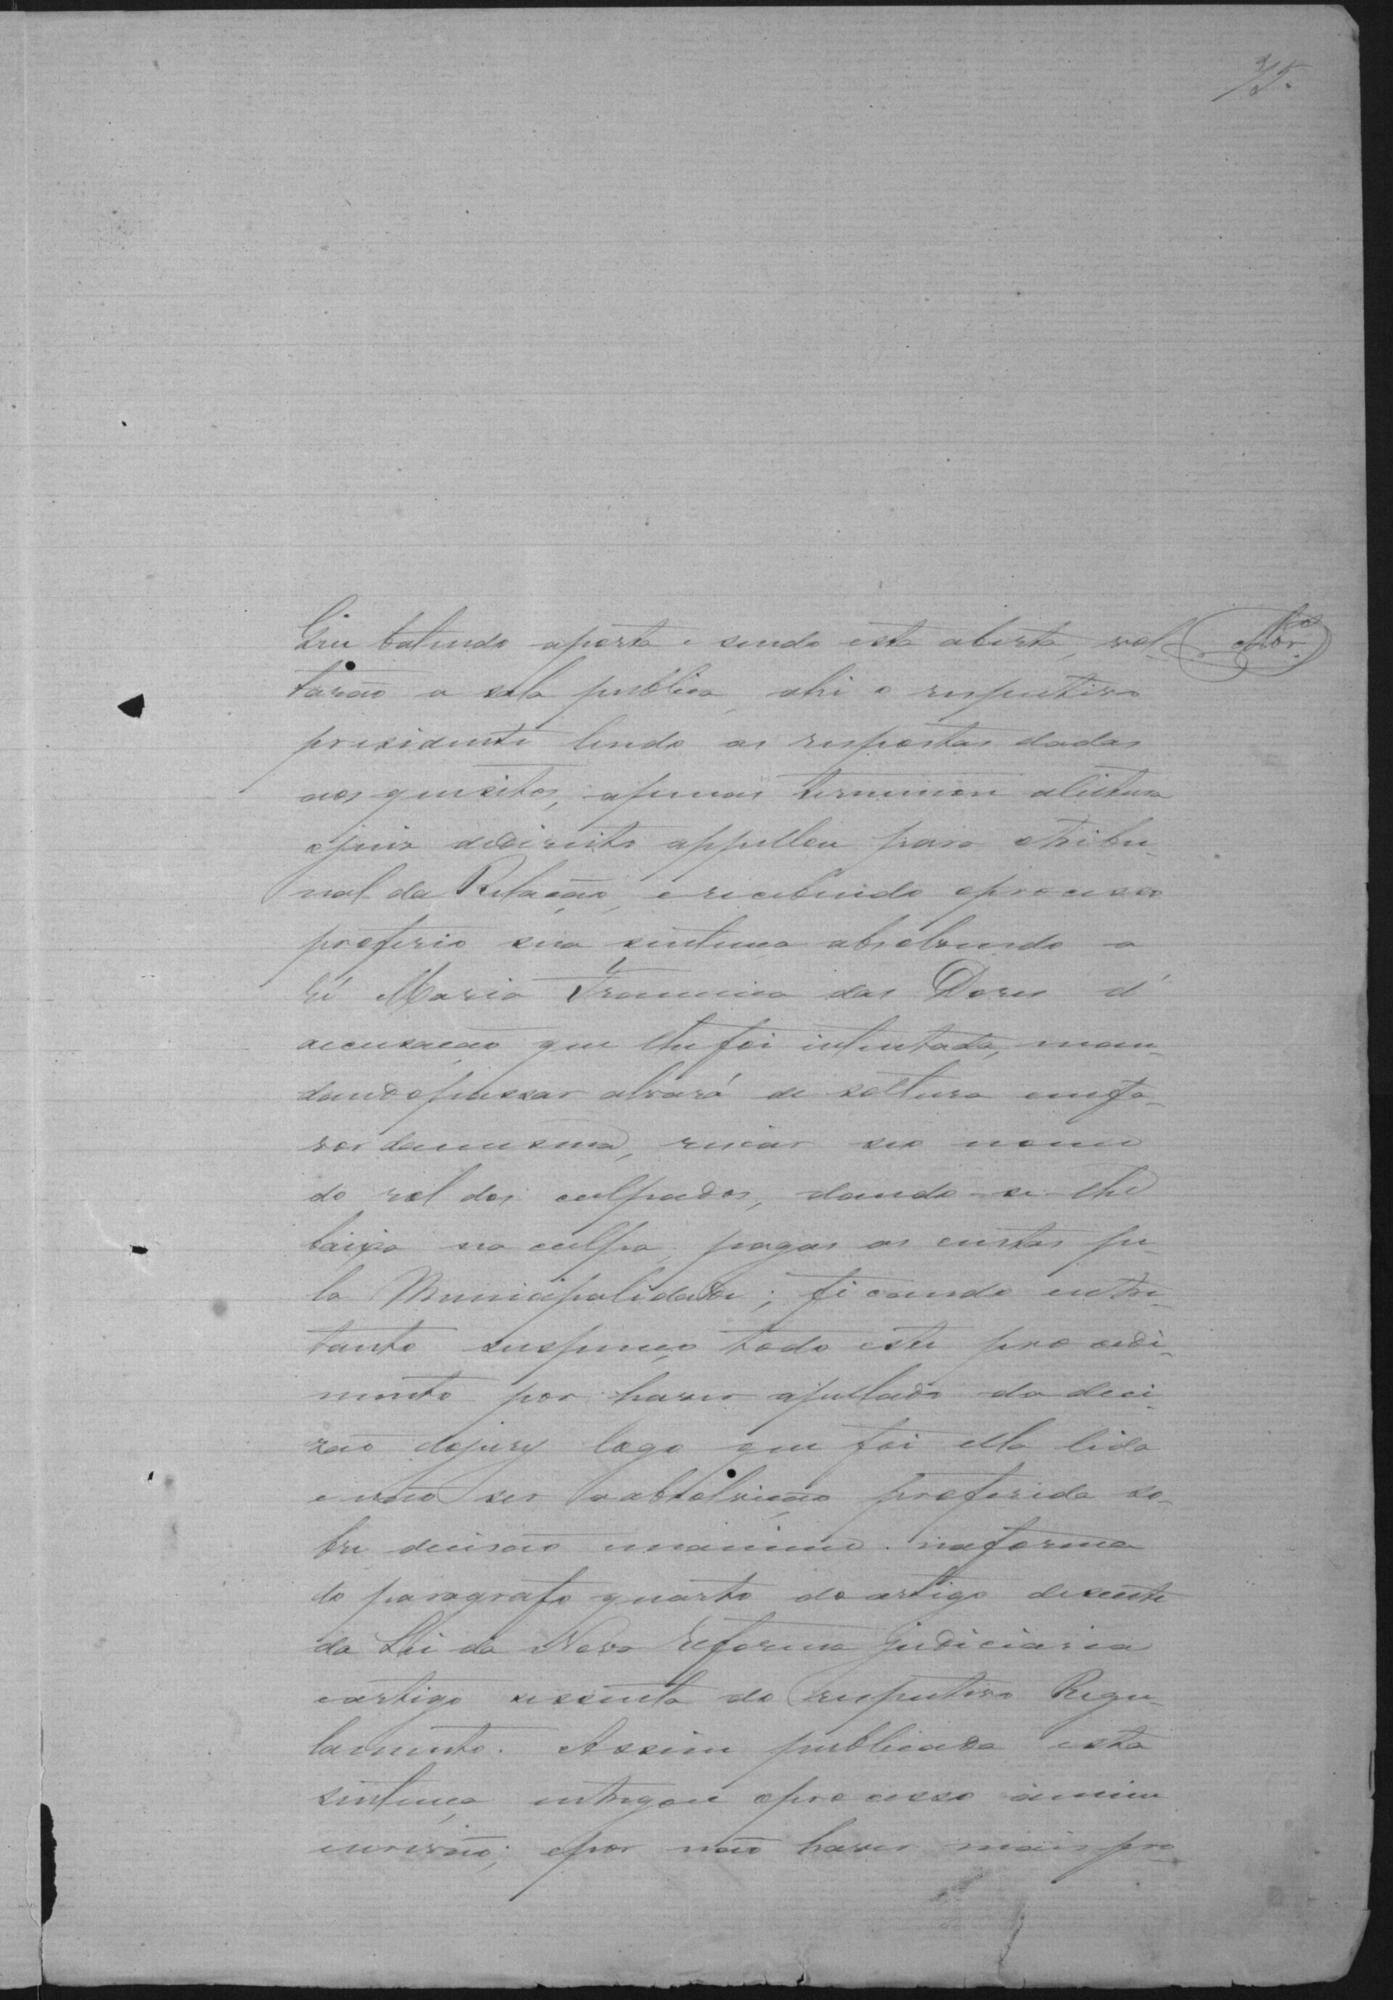 75.
que batendo aporta e sendo esta aberta, vol
tarão a sala publica, ahi o respectivo
presidente lendo as respostas dadas
aos quesitos, apenas terminou aleitura
ojuiz dedireito appellou para otribu-
nal da Relação, e recebendo oprocesso
proferio sua sentença absolvendo a
ré Maria Francisca das Dores d'
accusação que lhe foi intentada, man-
dandopassar alvará de soltura emfa-
vor damesma, riscar seo nome
do rol dos culpados, dando-se-lhe
baixa na culpa, pagas as custas pe-
la Municipalidade; ficando entre-
tanto suspenço todo este procedi-
mento por haver apellado da deci-
zão dojury logo que foi ella lida
enão ser aabsolvição proferida so-
bre decisão unanime. naforma
do paragrafo quarto doartigo desesete
da Lei da Nova Reforma judiciaria
eartigo sessenta do respectivo Regu-
lamento. Assim publicada esta
sentença entregou oprocesso amim
escrivão; epor não haver mais pro-